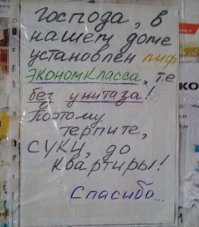 господа, в
нашем доме
установлен лифт
экономкласса, т.е
без унитаза!
Поэтому
терпите,
суки, до
квартиры!
Спасибо...
КО